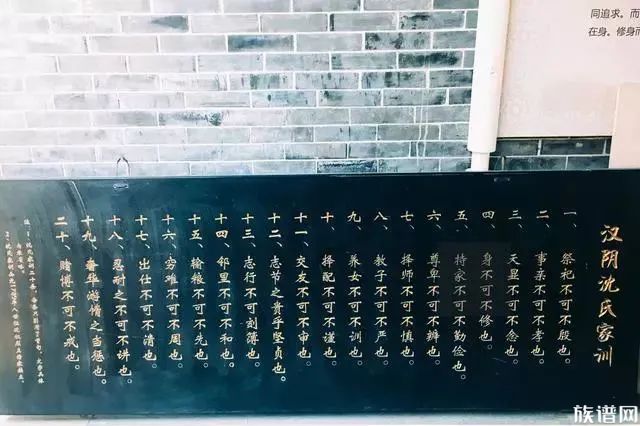 汉阴沈氏家训
一、祭祀不可不殷也。
二、事亲不可不孝也。
三、天显不可不念也。
四、身不可不修也。
五、持家不可不勤俭也。
六、尊卑不可不辨也。
七、择师不可不慎也。
八、教子不可不严也。
九、养女不可不训也。
十、择配不可不谨也。
十一、交友不可不审也。
十二、志节之贵乎坚贞也。
十三、志行不可刻薄也。
十四、邻里不可不和也。
十五、输粮不可不先也。
十六、穷难不可不周也。
十七、出仕不可不清也。
十八、忍耐之不可不讲也。
十九、奢华游惰之当惩也。
二十、赌博不可不戒也。
同追求。而
在身。修身而
族谱网